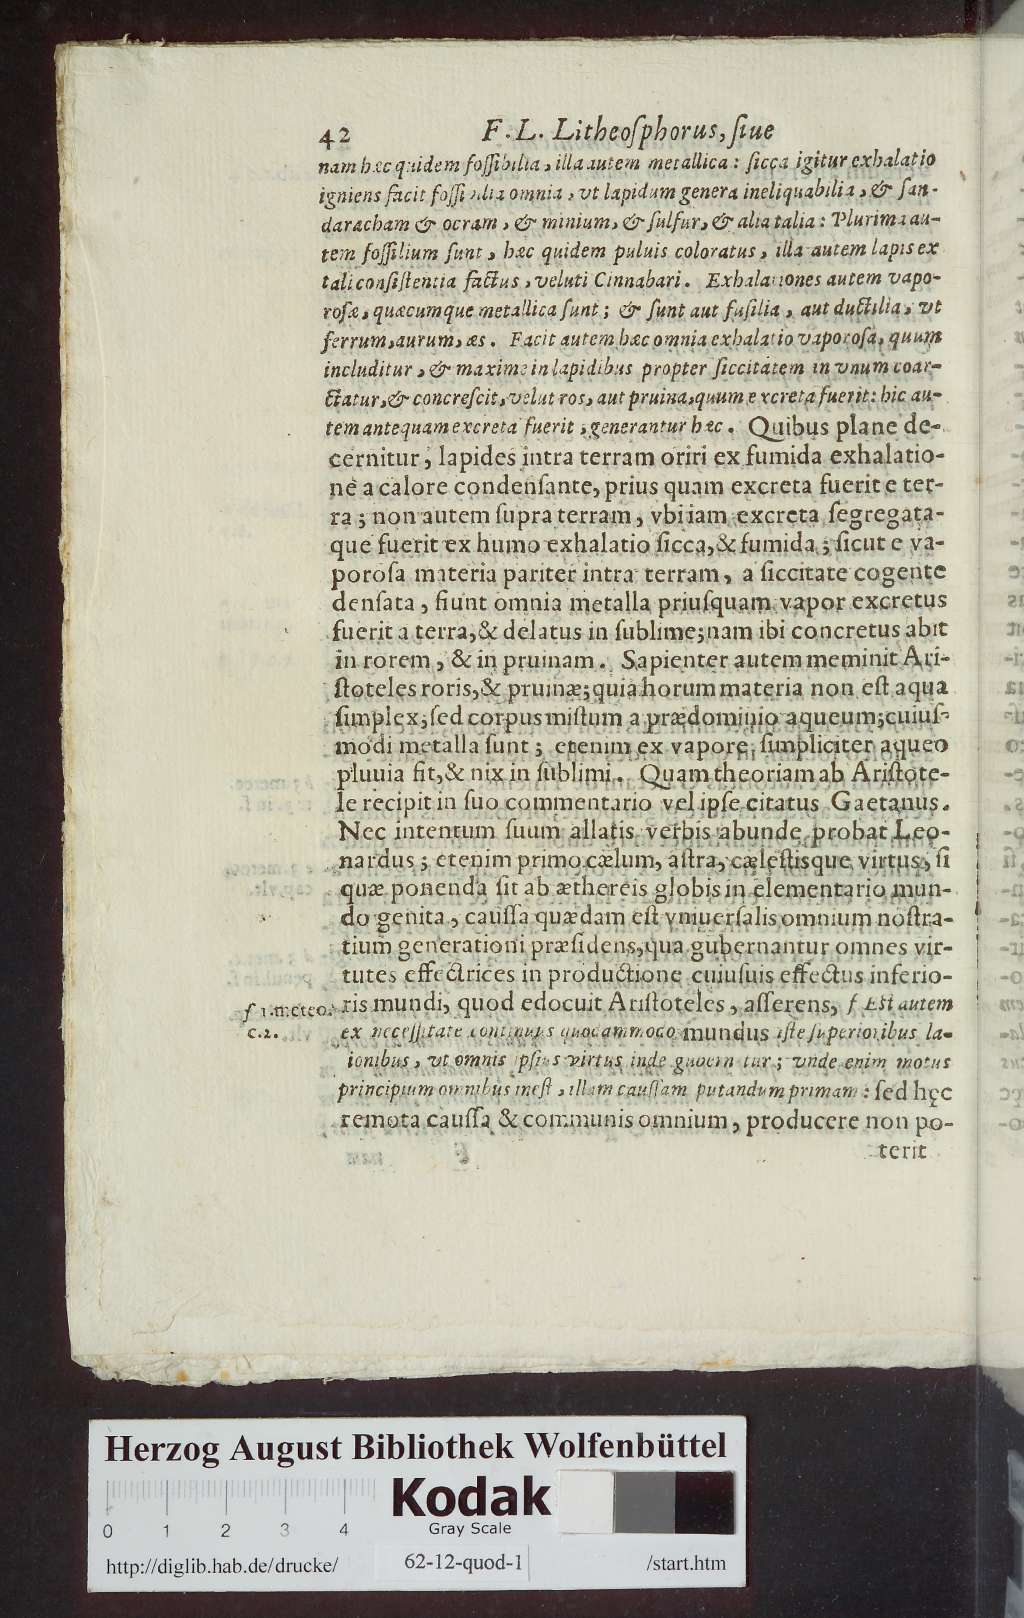 42 F. L. Litheoſphorus, ſiue
nam hæc quidem foſſibilia, illa autem metallica: ſicca igitur exhalatio
igniens facit foſſibilia omnia, vt lapidum genera ineliquabilia, & ſan-
daracham & ocram, & minium, & ſulfur, & alia talia: Plurima au-
tem foſſilium ſunt, hæc quidem puluis coloratus, illa autem lapis ex
tali conſiſtentia factus, veluti Cinnabari. Exhalationes autem vapo-
roſæ, quæcumque metallica ſunt; & ſunt aut fuſilia, aut ductilia, vt
ferrum, aurum, æs. Facit autem hæc omnia exhalatio vaporoſa, quum
includitur, & maxime in lapidibus propter ſiccitatem in vnum coar-
ctatur, & concreſcit, velut ros, aut pruina, quum excreta fuerit: hic au-
tem antequam excreta fuerit, generantur hæc. Quibus plane de-
cernitur, lapides intra terram oriri ex fumida exhalatio-
ne a calore condenſante, prius quam excreta fuerit e ter-
ra; non autem ſupra terram, vbi iam excreta ſegregata-
que fuerit ex humo exhalatio ſicca, & fumida; ſicut e va-
poroſa materia pariter intra terram, a ſiccitate cogente
denſata, fiunt omnia metalla priuſquam vapor excretus
fuerit a terra, & delatus in ſublime; nam ibi concretus abit
in rorem, & in pruinam. Sapienter autem meminit Ari-
ſtoteles roris, & pruinæ; quia horum materia non eſt aqua
ſimplex; ſed corpus miſtum a prædominio aqueum; cuiuſ-
modi metalla ſunt; etenim ex vapore ſimpliciter aqueo
pluuia fit, & nix in ſublimi. Quam theoriam ab Ariſtote-
le recipit in ſuo commentario vel ipſe citatus Gaetanus.
Nec intentum ſuum allatis verbis abunde probat Leo-
nardus; etenim primo cælum, aſtra, cæleſtisque virtus, ſi
quæ ponenda ſit ab æthereis globis in elementario mun-
do genita, cauſſa quædam eſt vniuerſalis omnium noſtra-
tium generationi præſidens, qua gubernantur omnes vir-
tutes effectrices in productione cuiuſuis effectus inferio-
f 1. meteo. ris mundi, quod edocuit Ariſtoteles, aſſerens, f Eſt autem
c. 2. ex neceſſitate continuus quodammodo mundus iſte ſuperioribus la-
ionibus, vt omnis ipſius virtus inde gubernetur; vnde enim motus
principium omnibus ineſt, illam cauſſam putandum primam: ſed hęc
remota cauſſa & communis omnium, producere non po-
terit
Herzog August Bibliothek Wolfenbüttel
Kodak
Gray Scale
0 1 2 3 4
http://diglib.hab.de/drucke/ 62-12-quod-1 /start.htm